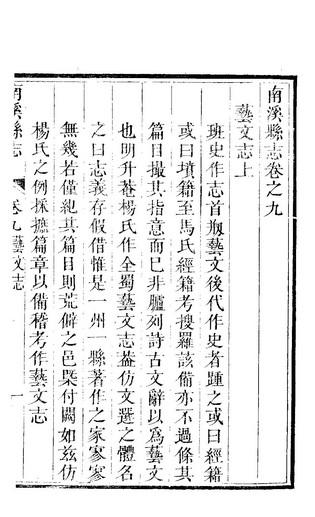 南溪縣志卷之九
藝文志上
班史作志首刱藝文後代作史者踵之或曰經籍
或曰墳籍至馬氏經籍考搜羅該備亦不過條其
篇目撮其指意而已非臚列詩古文辭以為藝文
也明升菴楊氏作全蜀藝文志葢仿文選之體名
之曰志義存假借惟是一州一縣著作之家寥寥
無幾若僅紀其篇目則荒僻之邑槩付闕如茲仿
楊氏之例採摭篇章以備稽考作藝文志
南溪縣志
卷九藝文志
一